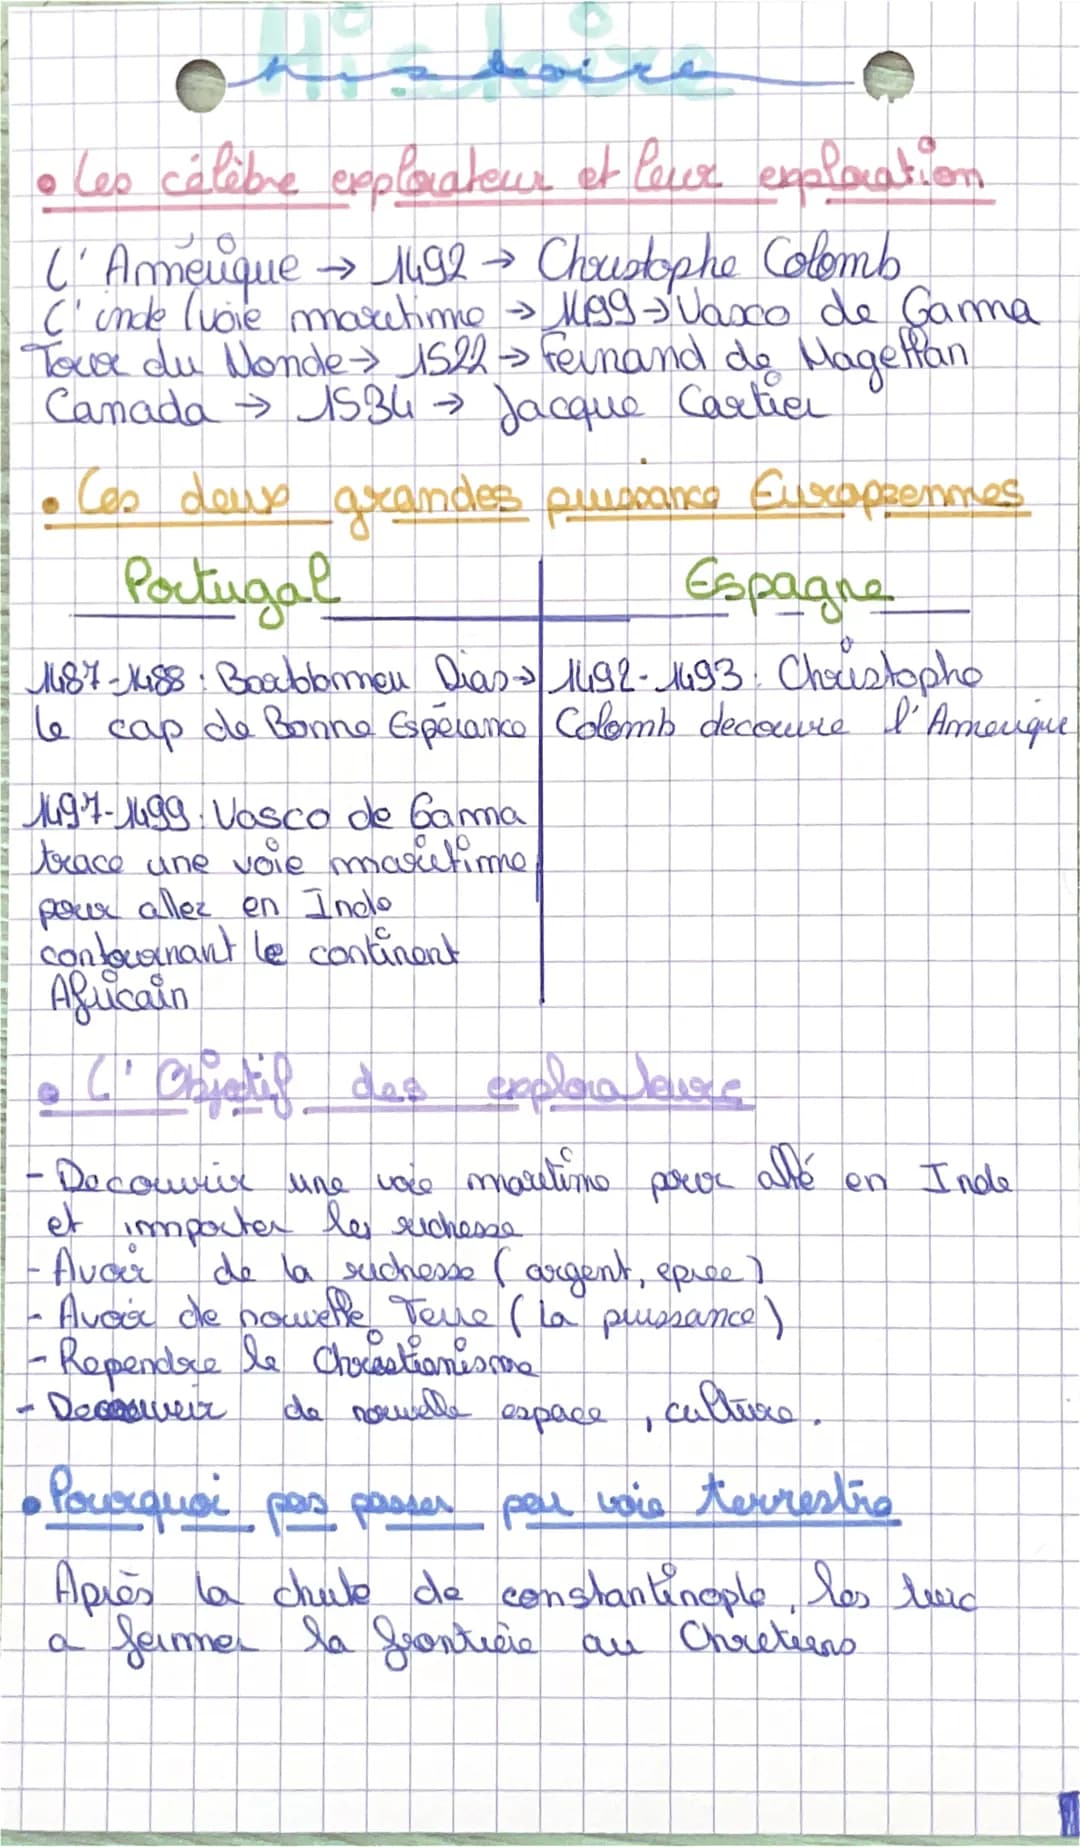 Histoire
• Les célèbre explorateur et leur exploration
L'Amérique → 1492 → Christophe Colomb
L'inde (voie maritime → 1499 → Vasco de Gama
Tour du Monde → 1522 → Fernand de Magellan
Canada → 1534 → Jacque Cartier
• Les deux grandes puissance Européennes
Portugal
Espagne
1487-1488 : Bartolomeu Dias →
le cap de Bonne Espérance
1492-1493 : Christophe
Colomb decouvre l'Amerique
1497-1499 : Vasco de Gama
trace une voie maritime
pour allez en Inde
contournant le continent
Africain
• L'Objetif des explorateurs
- Decouvrir une voie maritime pour allé en Inde
et importer les richesse
- Avoir de la richesse (argent, epice)
- Avoir de nouvelle Terre (la puissance)
- Rependre le Christianisme
- Decouvrir de nouvelle espace, culture.
• Pourquoi pas passer par voie terrestre
Après la chute de constantinople, les turc
a fermer la frontière au Chretiens